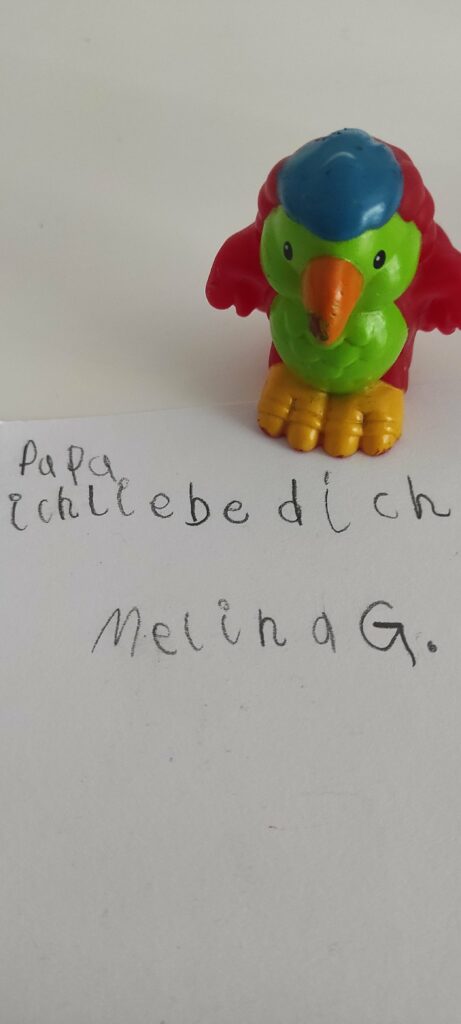 Papa
ichliebe dich
Melina G.